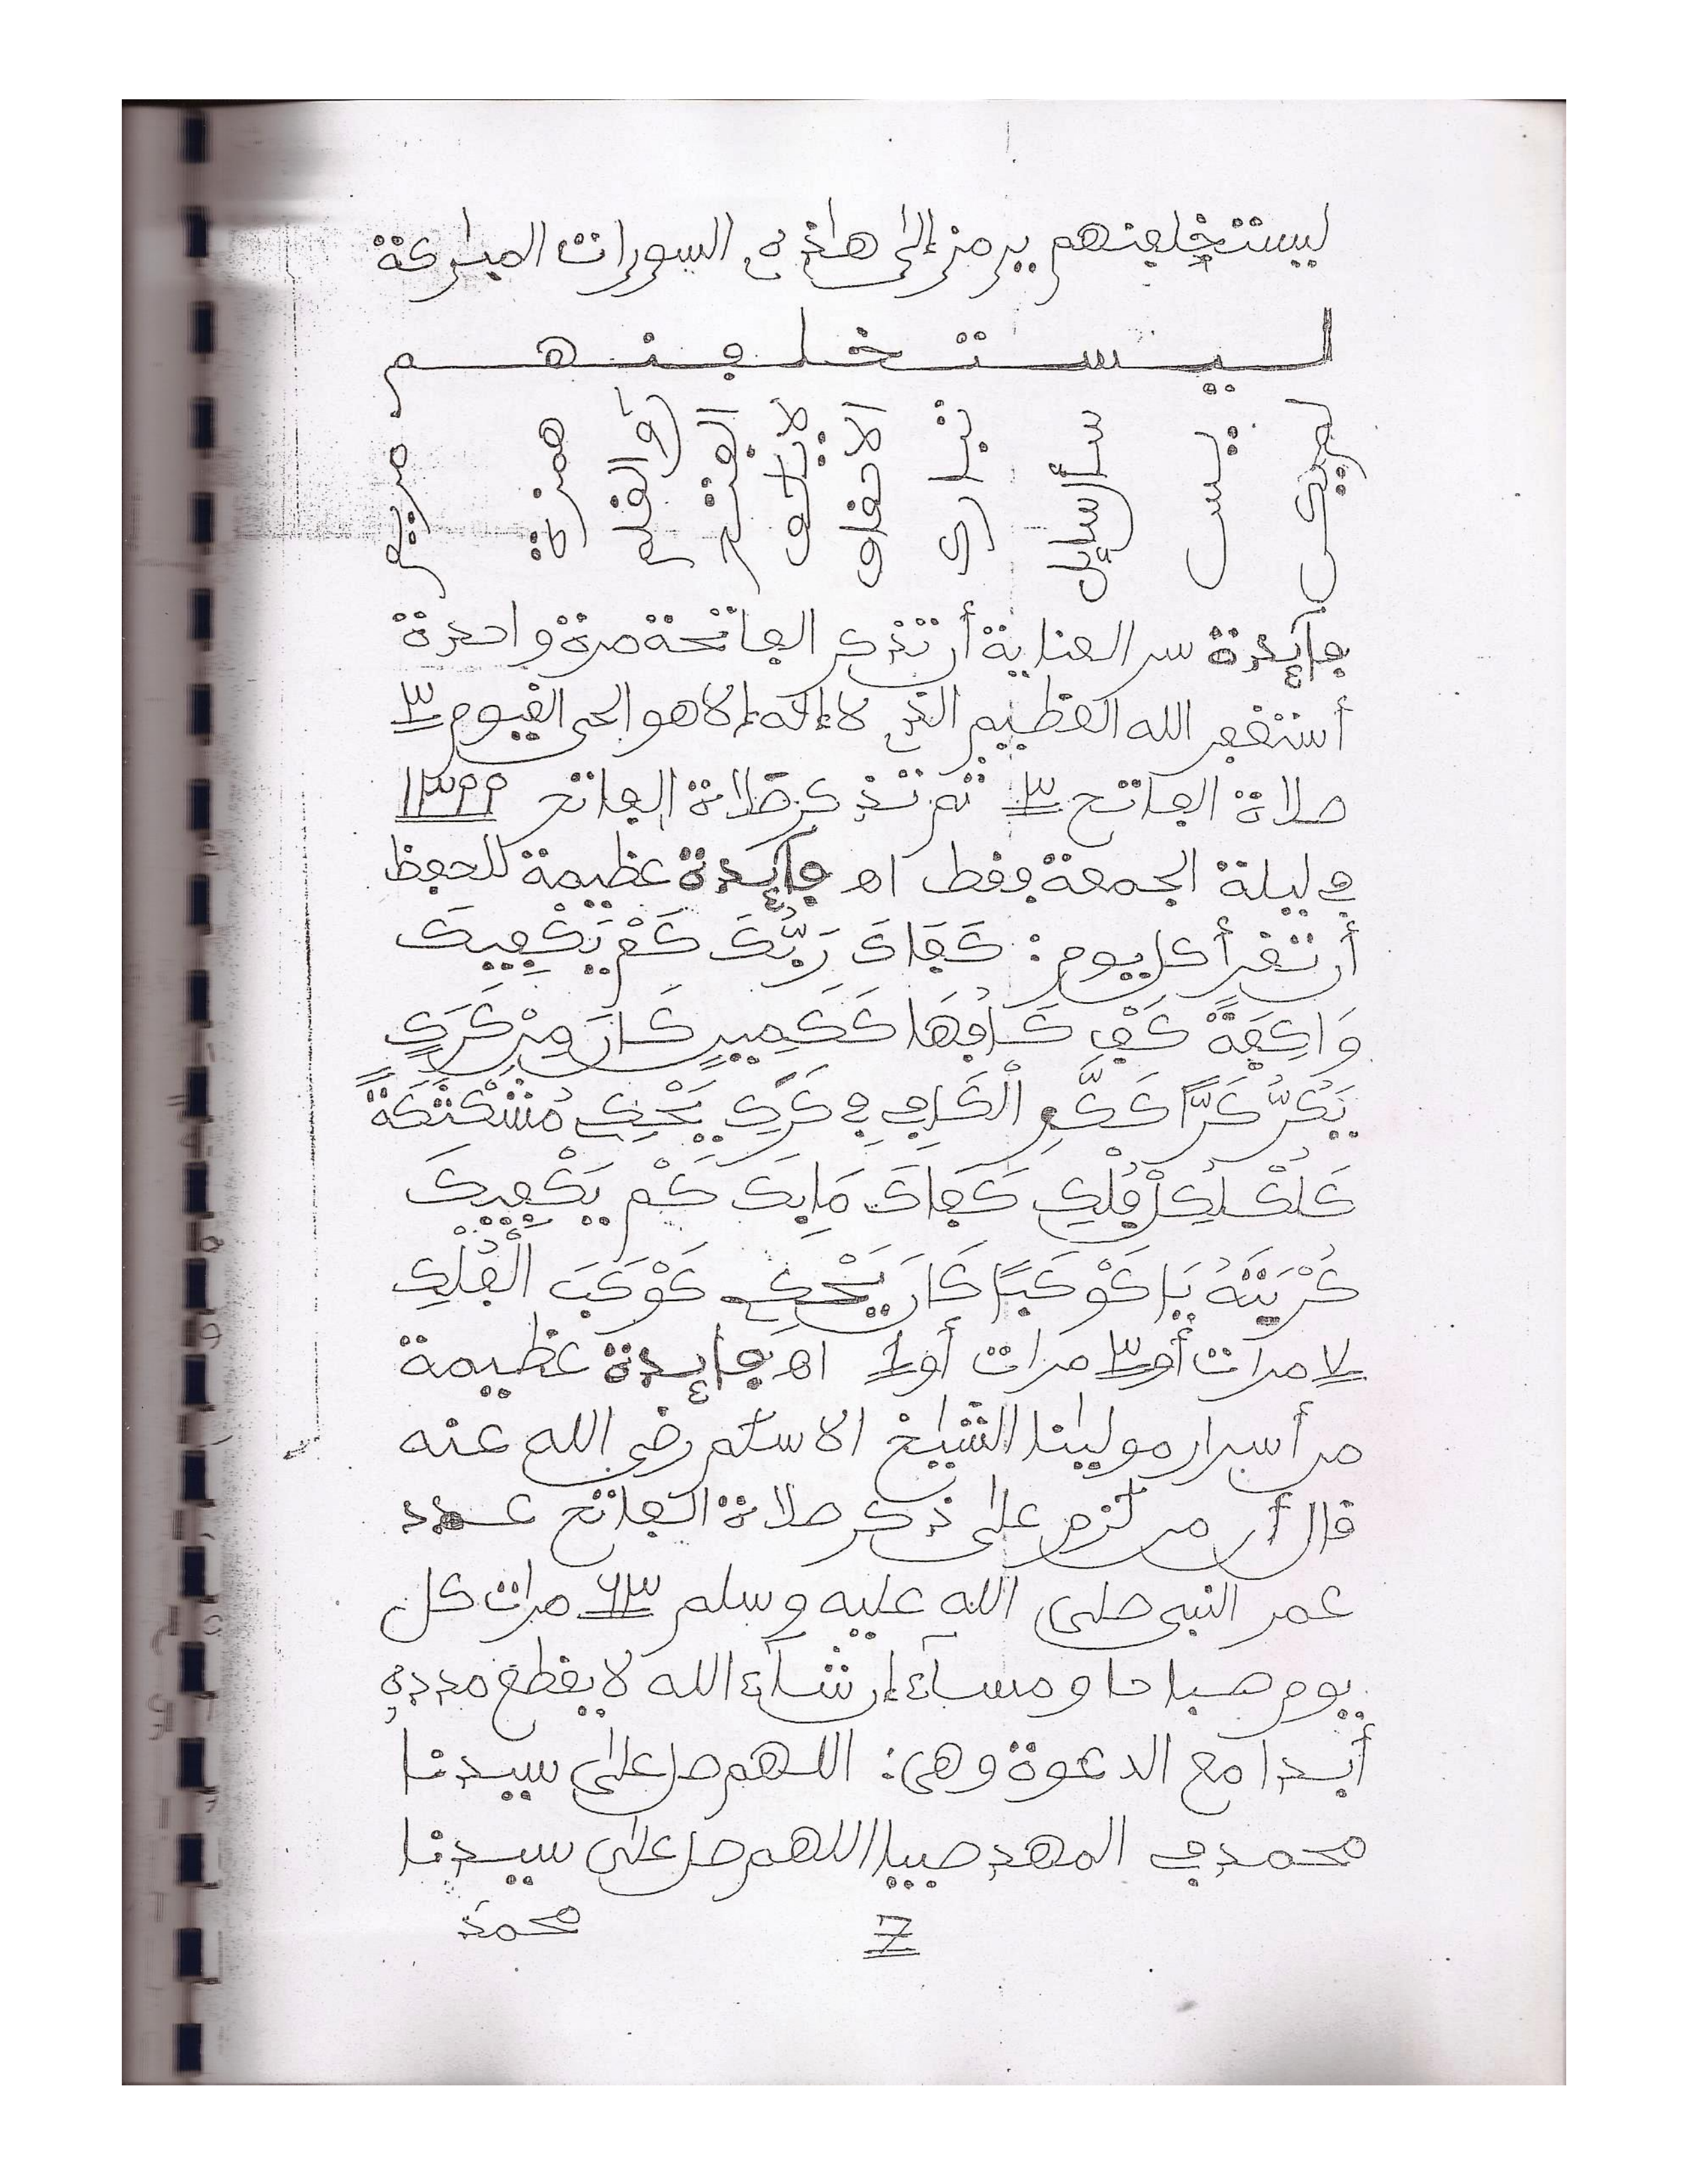 ليستخلفنهم يرمز إلى هاذه السورات المباركة
لـيـسـتـخـلـفـنـهـم
لإيلف قريش
يس
سأل سايل
تبارك
الأحقاف
لإيلاف
الفتح
ن والقلم
همزة
مريم
فايدة سر العناية أن تذكر الفاتحة مرة واحدة
أستغفر الله العظيم الذي لا إله إلا هو الحي القيوم ٣
صلاة الفاتح ٣ ثم تذكر صلاة الفاتح ١٣٢٢
في ليلة الجمعة فقط اه فايدة عظيمة للحفظ
أن تقرأ كل يوم: كَفَاكَ رَبُّكَ كَمْ يَكْفِيكَ
وَاكِفَةً كَفْكَافُهَا كَكَمِينٍ كَانَ مِنْ كَلَكٍ
يَكُرُّ كَرًّا كَكَرِّ الْكَرِّ فِي كَرَكٍ يَحْكِي مُشَكْشَكَةً
كَلُكْلُكٍ لَكَكٍ كَفَاكَ مَابِكَ كَمْ يَكْفِيكَ
كُرْبَتَهُ يَا كَوْكَبًا كَانَ يَحْكِي كَوْكَبَ الْفَلَكِ
٧ مرات أو ٣ مرات أو ١ اه فايدة عظيمة
من أسرار مولينا الشيخ الاسلم رضي الله عنه
قال أن من لزم على ذكر صلاة الفاتح عدد
عمر النبي صلى الله عليه وسلم ٦٣ مرات كل
يوم صباحا ومساء إن شاء الله لا يقطع مدده
أبدا مع الدعوة وهي: اللهم صل على سيدنا
محمد في المهد صبيا اللهم صل على سيدنا
محمد
7